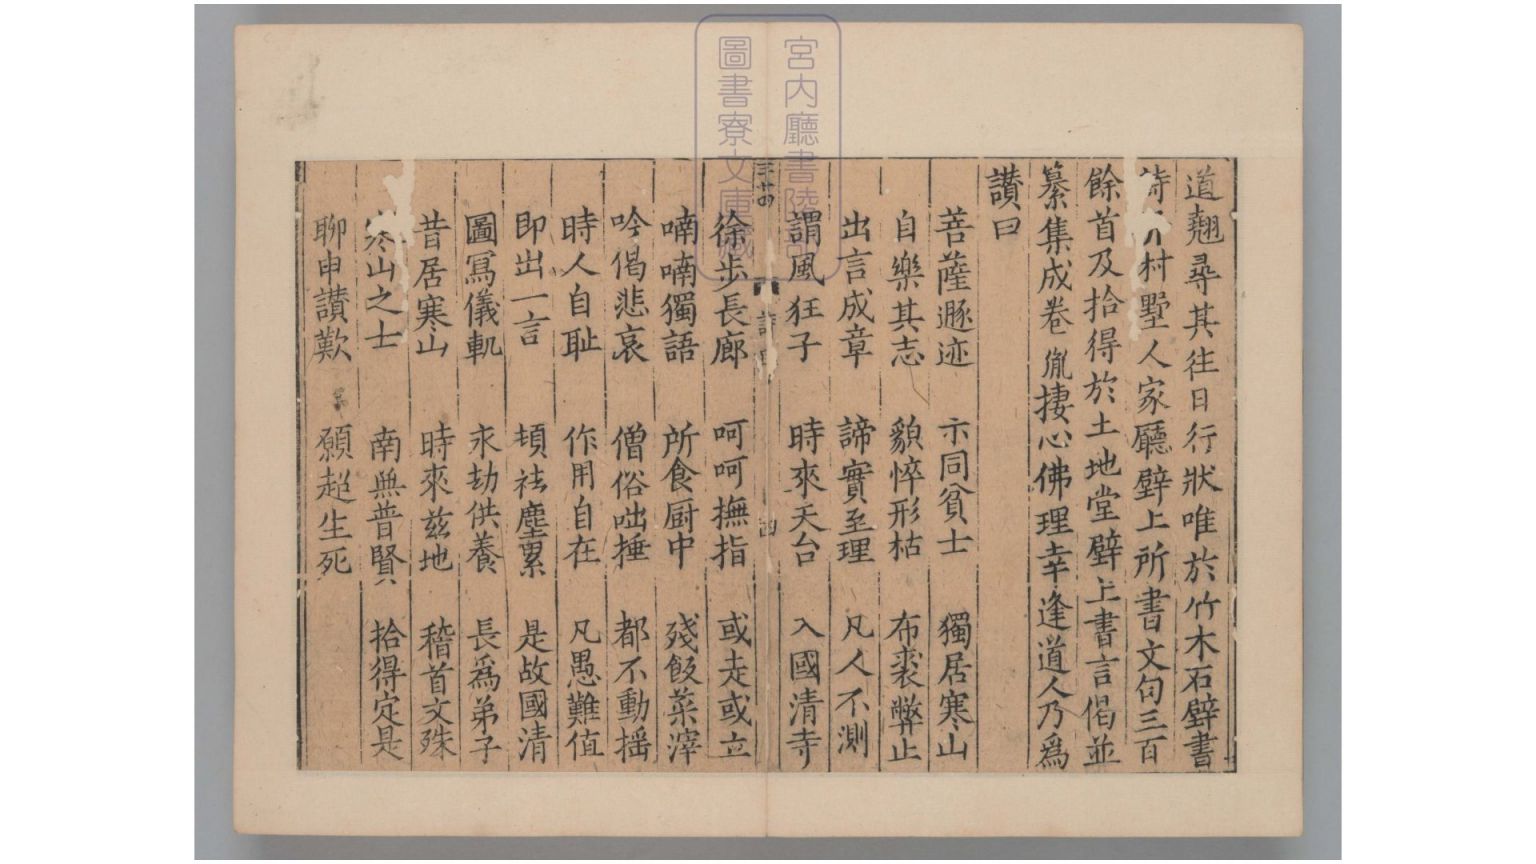 道翹尋其往日行狀唯於竹木石壁書
詩 村墅人家廳壁上所書文句三百
餘首及拾得於土地堂壁上書言偈並
纂集成卷胤捿心佛理幸逢道人乃爲
讃曰
菩薩遯迹 示同貧士 獨居寒山
自樂其志 貌悴形枯 布裘弊止
出言成章 諦實至理 凡人不測
謂風狂子 時來天台 入國清寺
詩 四
徐步長廊 呵呵撫指 或走或立
喃喃獨語 所食厨中 殘飯菜滓
吟偈悲哀 僧俗咄捶 都不動揺
時人自耻 作用自在 凡愚難值
即出一言 頓祛塵累 是故國清
圖冩儀軌 永劫供養 長爲弟子
昔居寒山 時來兹地 稽首文殊
寒山之士 南無普賢 拾得定是
聊申讃歎 願超生死
宮内廳書陵部
圖書寮文庫藏